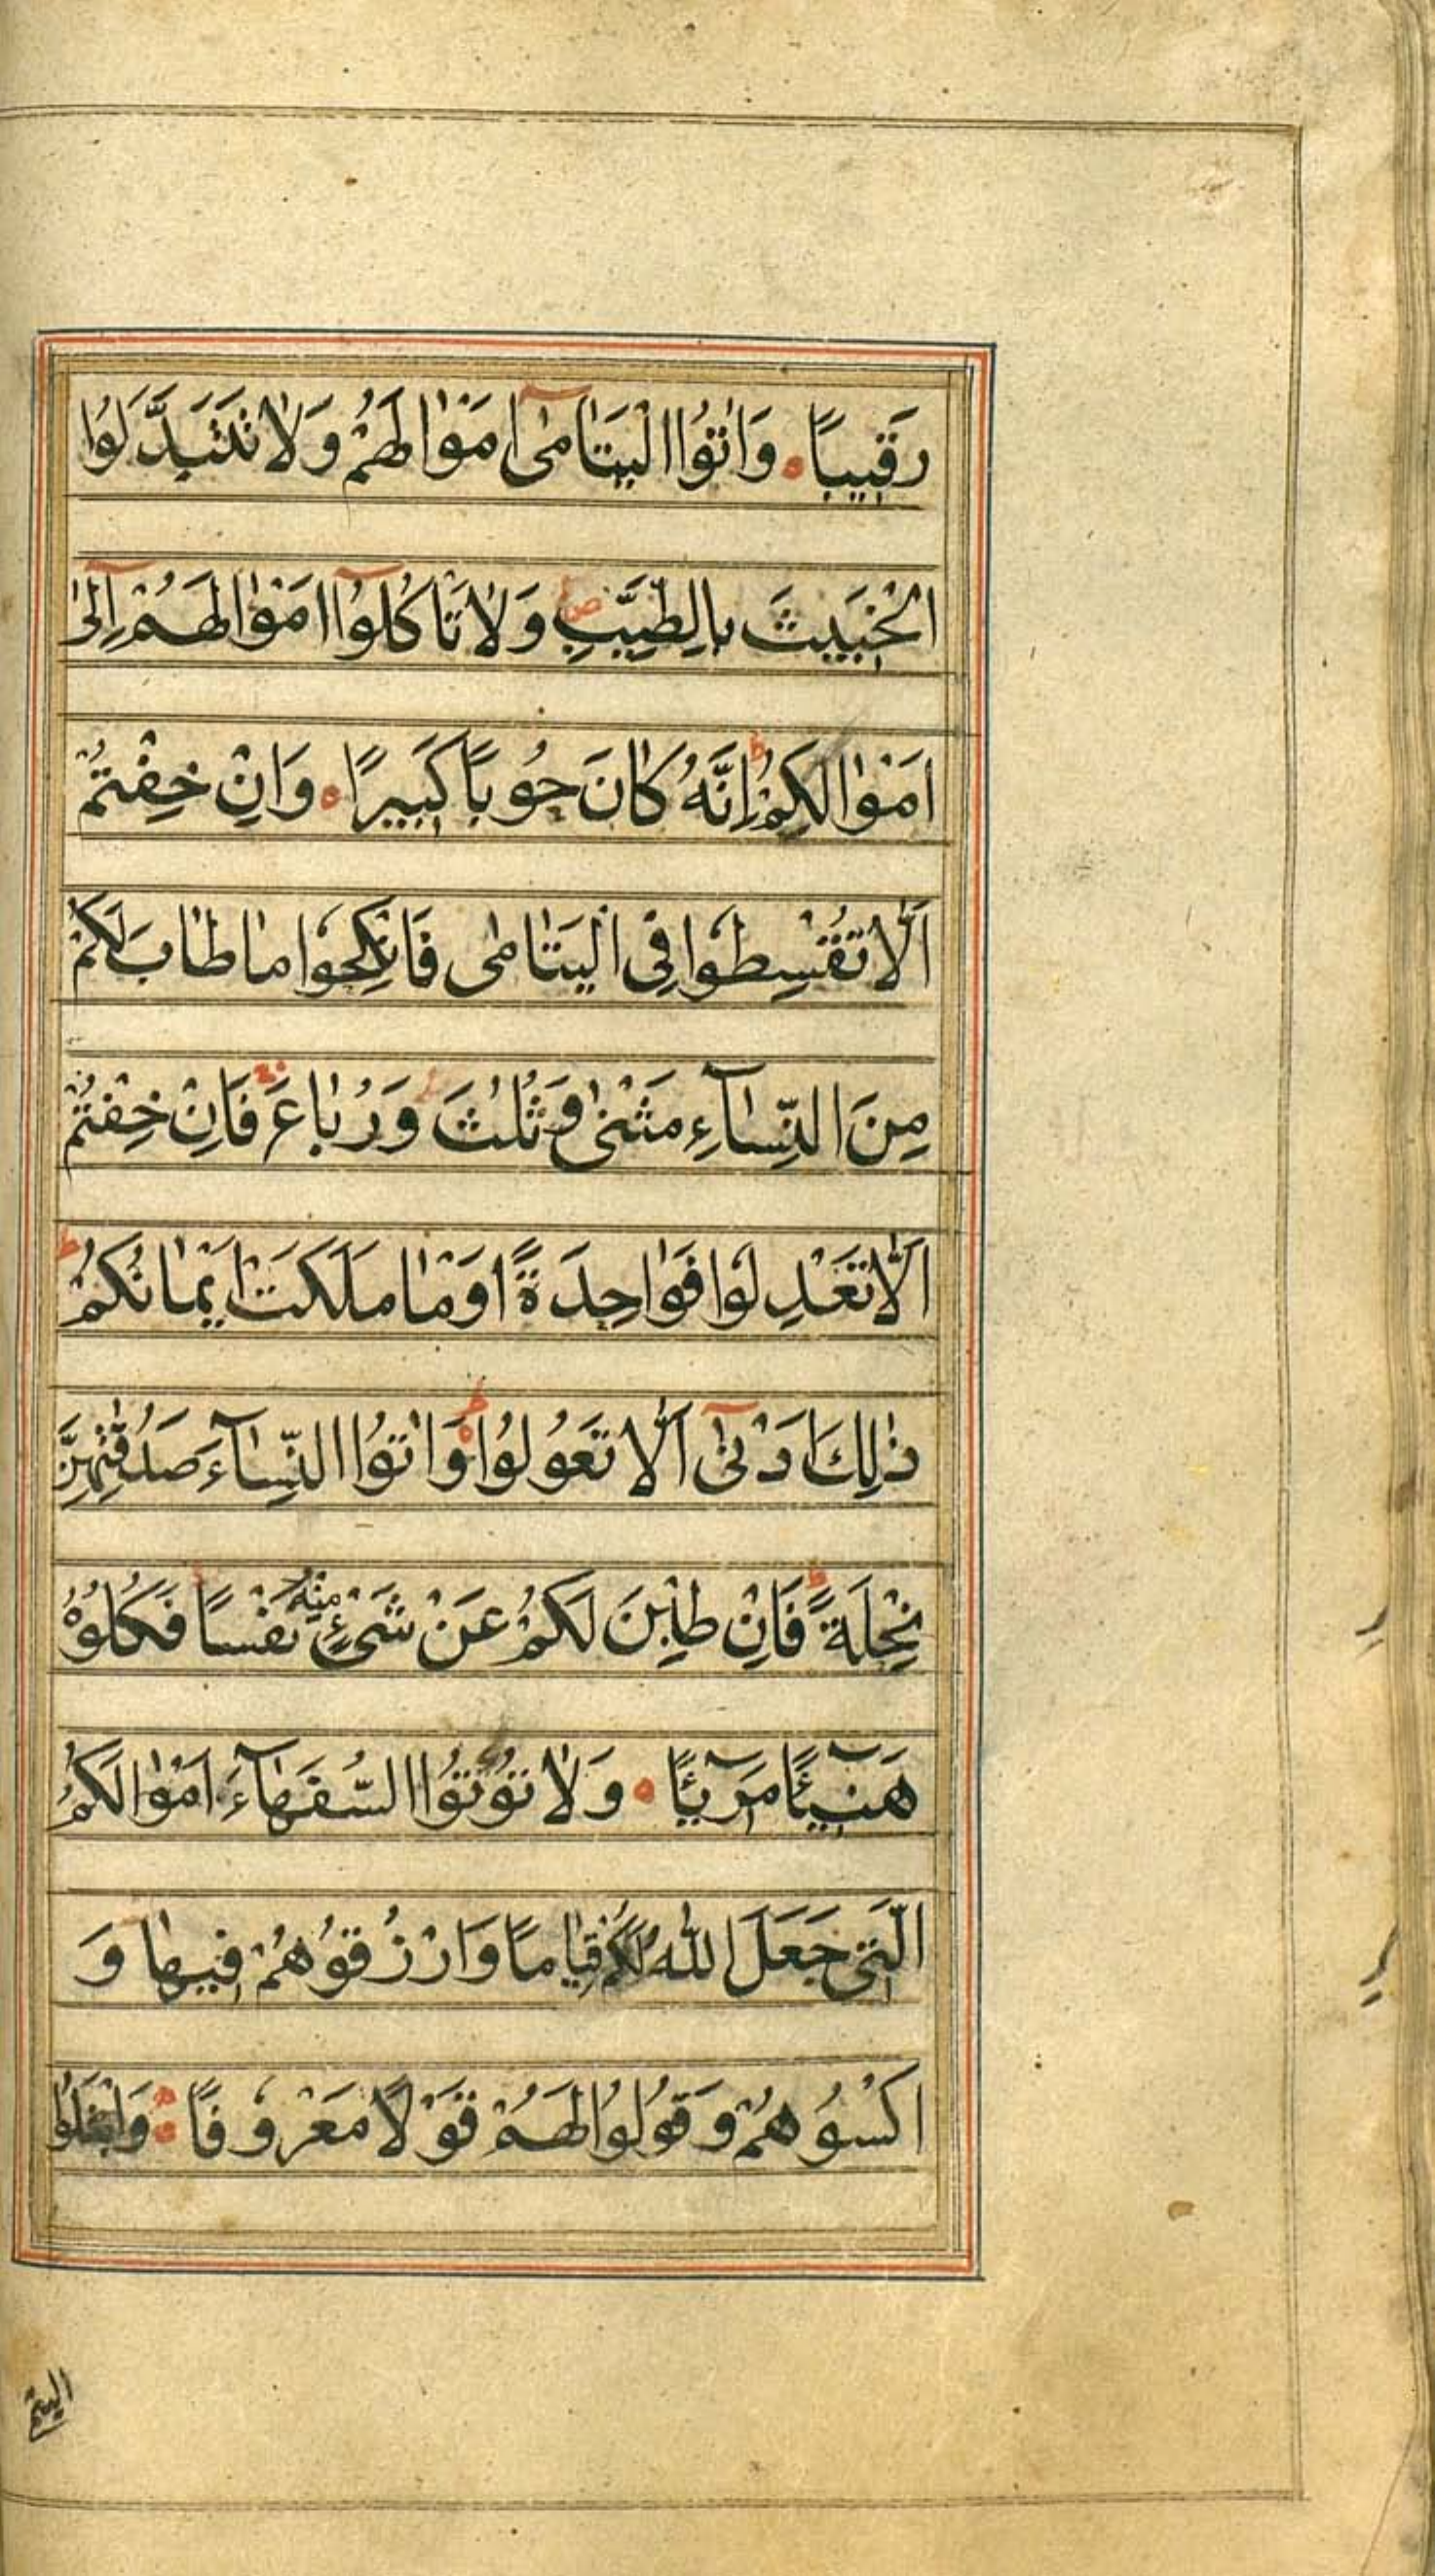 رَقٖيبًا ۝ وَاٰتُوا الْيَتَامٰىٓ اَمْوٰالَهُمْ وَلٰا تَتَبَدَّلُوا
الْخَبٖيثَ بِالطَّيِّبِ ۖ وَلٰا تَاْكُلُوٓا اَمْوٰالَهُمْ اِلٰىٓ
اَمْوٰالِكُمْ ۭ اِنَّهُ كٰانَ حُوبًا كَبٖيرًا ۝ وَاِنْ خِفْتُمْ
اَلّٰا تُقْسِطُوا فِى الْيَتٰامٰى فَانْكِحُوا مٰا طٰابَ لَكُمْ
مِنَ النِّسٰآءِ مَثْنٰى وَثُلٰثَ وَرُبٰاعَ فَاِنْ خِفْتُمْ
اَلّٰا تَعْدِلُوا فَوٰاحِدَةً اَوْ مٰا مَلَكَتْ اَيْمٰانُكُمْ ط
ذٰلِكَ اَدْنٰىٓ اَلّٰا تَعُولُوا ۝ ط وَاٰتُوا النِّسٰآءَ صَدُقٰتِهِنَّ
نِحْلَةً ط فَاِنْ طِبْنَ لَكُمْ عَنْ شَىْءٍ مِنْهُ نَفْسًا فَكُلُوْهُ
هَنٖٓيئًا مَرٖٓيئًا ۝ وَلٰا تُؤْتُوا السُّفَهٰآءَ اَمْوٰالَكُمُ
الَّتٖى جَعَلَ اللّٰهُ لَكُمْ قِيٰامًا وَارْزُقُوْهُمْ فٖيهٰا وَ
اكْسُوْهُمْ وَقُولُوا لَهُمْ قَوْلًا مَعْرُوفًا ۝ وَابْتَلُوا
اليتم